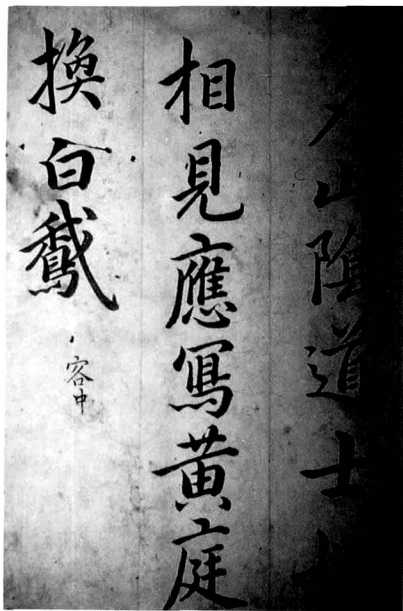 山陰道士
相見應冩黄庭
換白鵞
客中